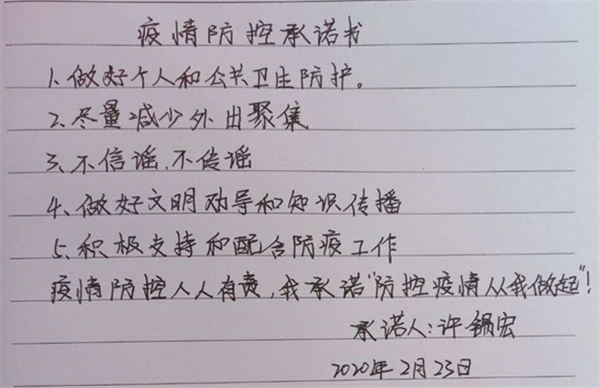 疫情防控承诺书
1.做好个人和公共卫生防护。
2、尽量减少外出聚集
3、不信谣,不传谣
4、做好文明劝导和知识传播
5.积极支持和配合防疫工作
疫情防控人人有责,我承诺"防控疫情从我做起"!
承诺人:许锡宏
2020年2月23日